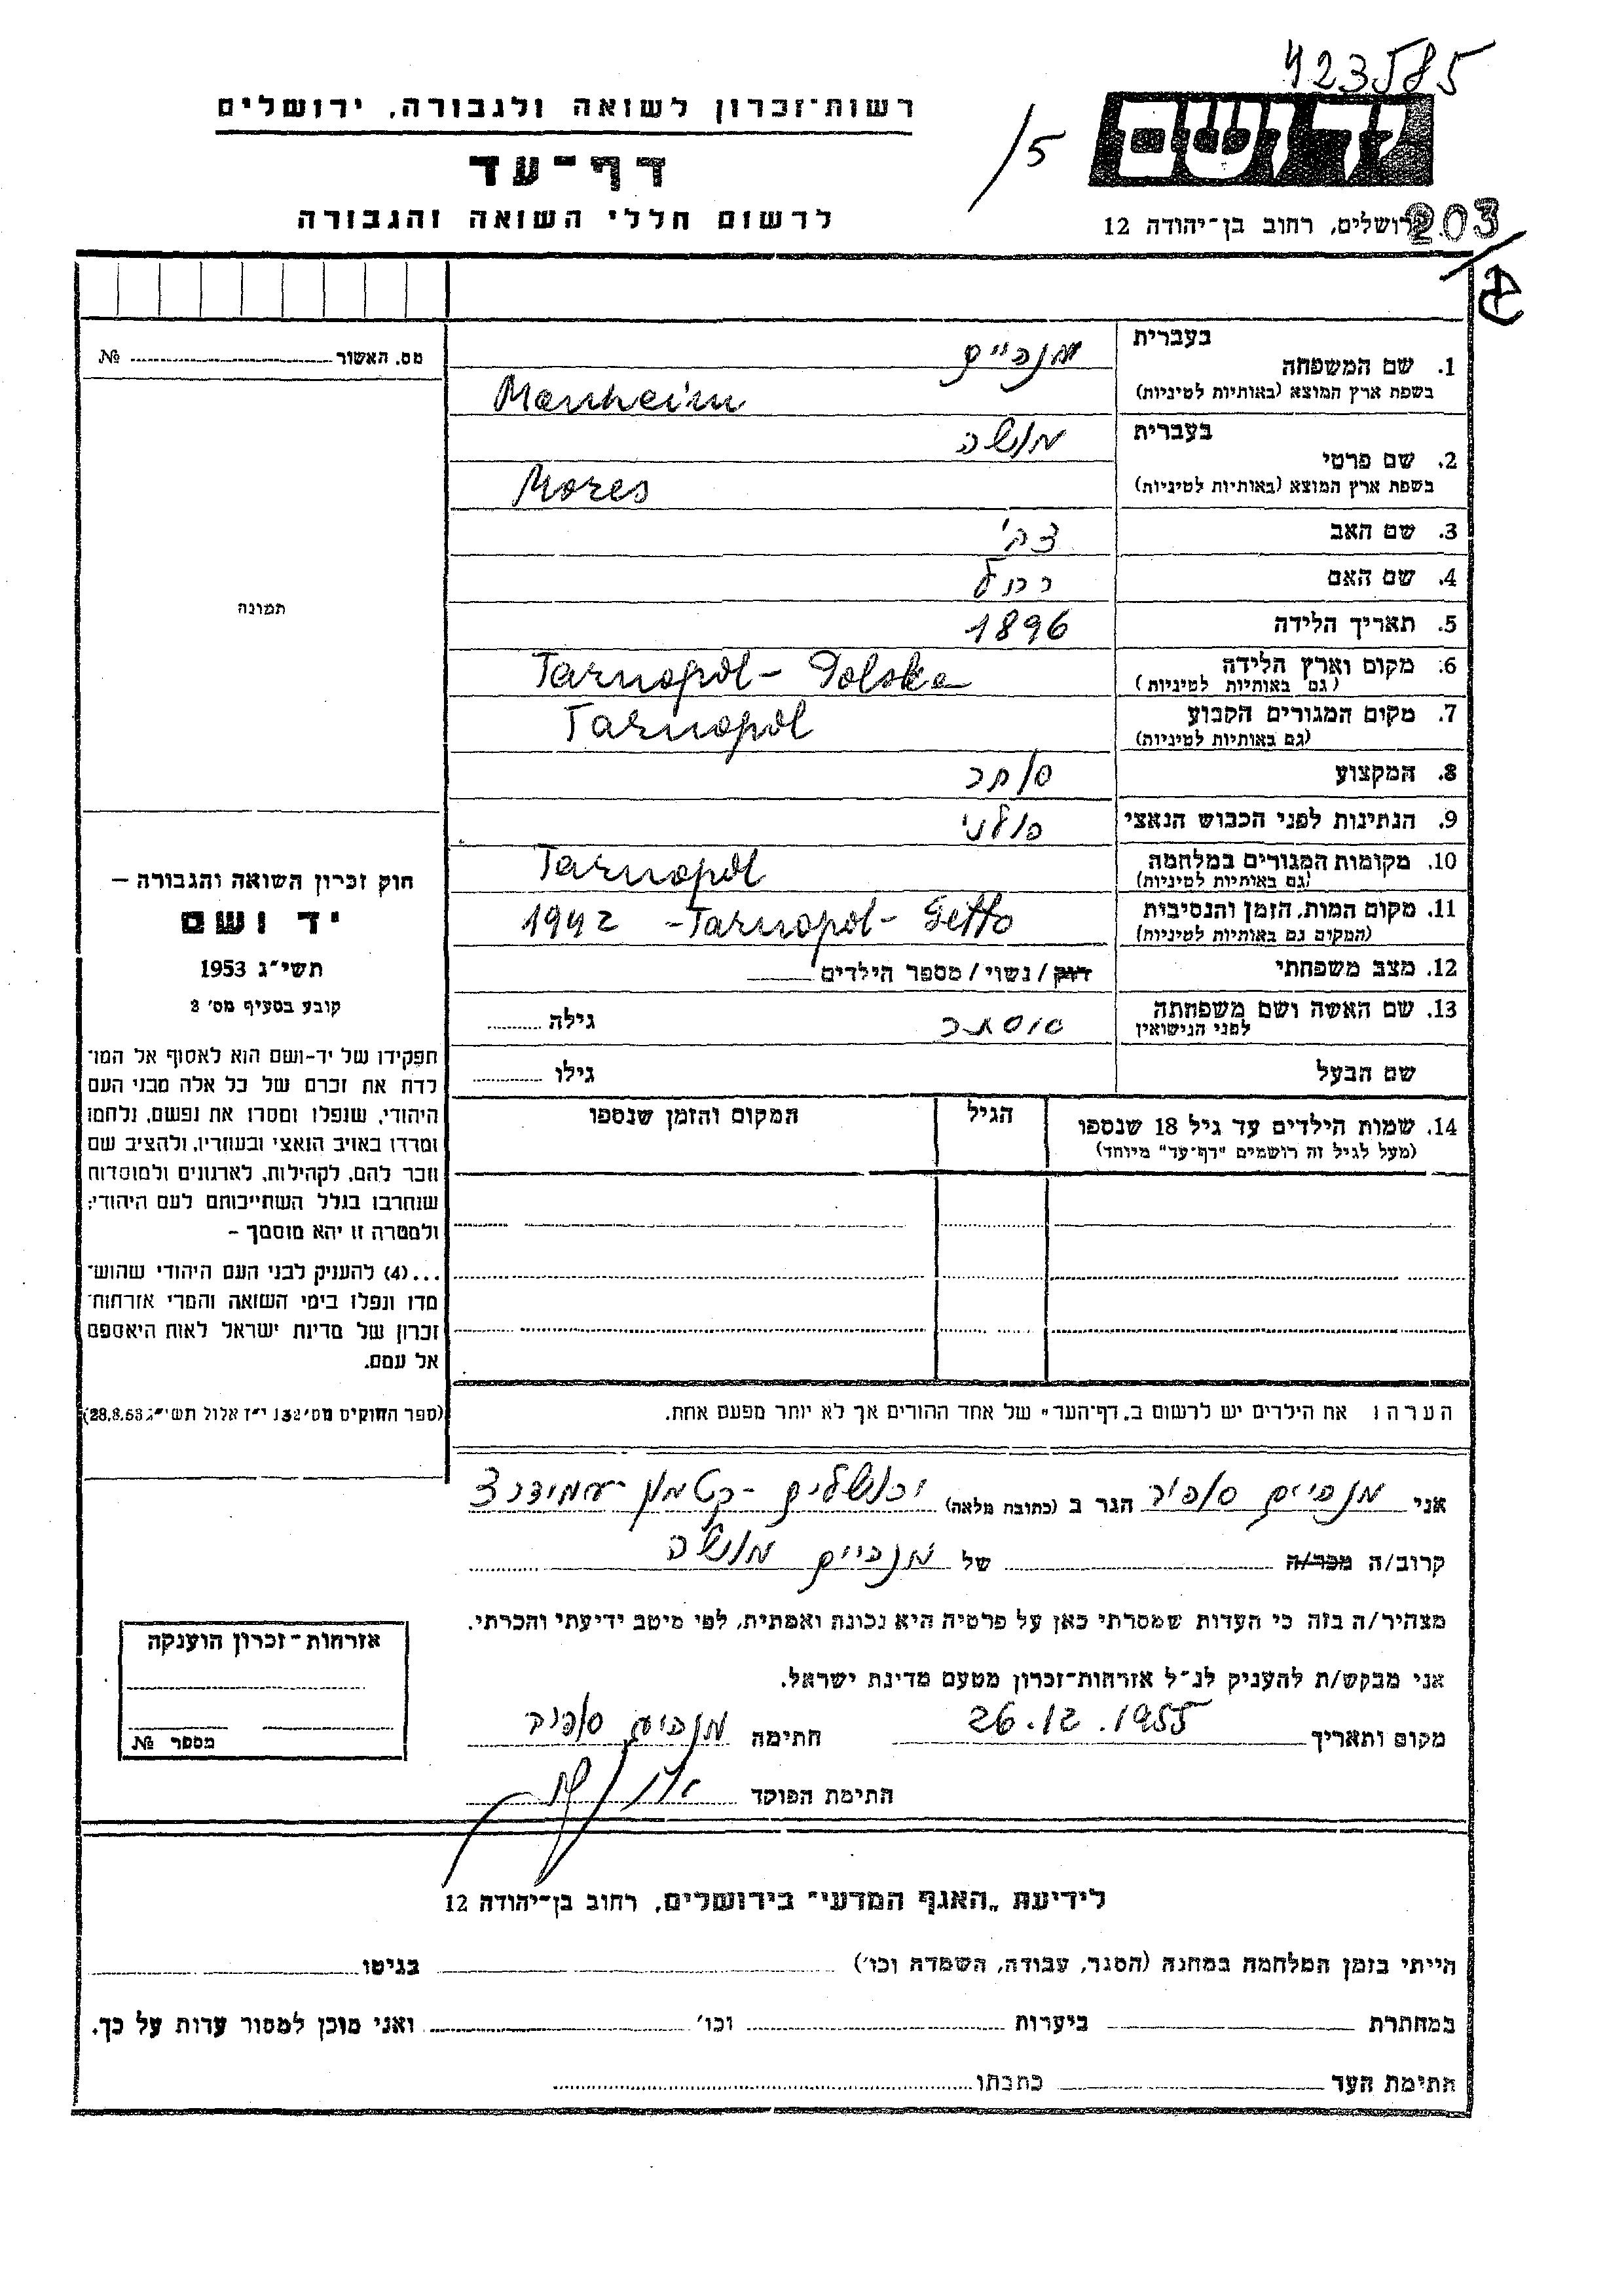 423585
רשות־זכרון לשואה ולגבורה, ירושלים
15
דף־עד
לרשום חללי השואה והגבורה
ירושלים, רחוב בן־יהודה 12
203
מס. האשור № 
בעברית
1. שם המשפחה
מנהיים
בשפת ארץ המוצא (באותיות לטיניות)
Manheim
בעברית
2. שם פרטי
מונשה
בשפת ארץ המוצא (באותיות לטיניות)
Mozes
3. שם האב
צבי
4. שם האם
רחל
תמונה
5. תאריך הלידה
1896
6. מקום וארץ הלידה
(גם באותיות לטיניות)
Tarnopol - Polska
7. מקום המגורים הקבוע
(גם באותיות לטיניות)
Tarnopol
8. המקצוע
סוחר
9. הנתינות לפני הכבוש הנאצי
פולני
10. מקומות המגורים במלחמה
(גם באותיות לטיניות)
Tarnopol
11. מקום המות, הזמן והנסיבות
(המקום גם באותיות לטיניות)
1942 - Tarnopol - Getto
12. מצב משפחתי
רווק / נשוי / מספר הילדים
13. שם האשה ושם משפחתה
לפני הנישואין
גילה
שם הבעל
גילו
14. שמות הילדים עד גיל 18 שנספו
(מעל לגיל זה רושמים "דף־עד" מיוחד)
הגיל
המקום והזמן שנספו
חוק זכרון השואה והגבורה —
יד ושם
תשי"ג 1953
קובע בסעיף מס' 2
תפקידו של יד-ושם הוא לאסוף אל המו־
לדת את זכרם של כל אלה מבני העם
היהודי, שנפלו ומסרו את נפשם, נלחמו
ומרדו באויב הנאצי ובעוזריו, ולהציב שם
וזכר להם, לקהילות, לארגונים ולמוסדות
שנחרבו בגלל השתייכותם לעם היהודי;
ולמטרה זו יהא מוסמך –
...(4) להעניק לבני העם היהודי שהוש־
מדו ונפלו בימי השואה והמרי אזרחות־
זכרון של מדינת ישראל לאות היאספם
אל עמם.
(ספר החוקים מס' 132, י"ז אלול תשי"ג 28.8.53)
הערה: את הילדים יש לרשום ב„דף־העד" של אחד ההורים אך לא יותר מפעם אחת.
אני מנהיים ספיר הגר ב (כתובת מלאה) ירושלים - קטמון
קרוב/ה מכר/ה של מנהיים מונשה
מצהיר/ה בזה כי העדות שמסרתי כאן על פרטיה היא נכונה ואמתית, לפי מיטב ידיעתי והכרתי.
אני מבקש/ת להעניק לנ"ל אזרחות־זכרון מטעם מדינת ישראל.
מקום ותאריך 26.12.1955 חתימה מנהיים ספיר
חתימת הפוקד
אזרחות־זכרון הוענקה
מספר №
לידיעת „האגף המדעי" בירושלים, רחוב בן־יהודה 12
הייתי בזמן המלחמה במחנה (הסגר, עבודה, השמדה וכו') בגיטו
במחתרת ביערות וכו' ואני מוכן למסור עדות על כך.
חתימת העד כתבתו